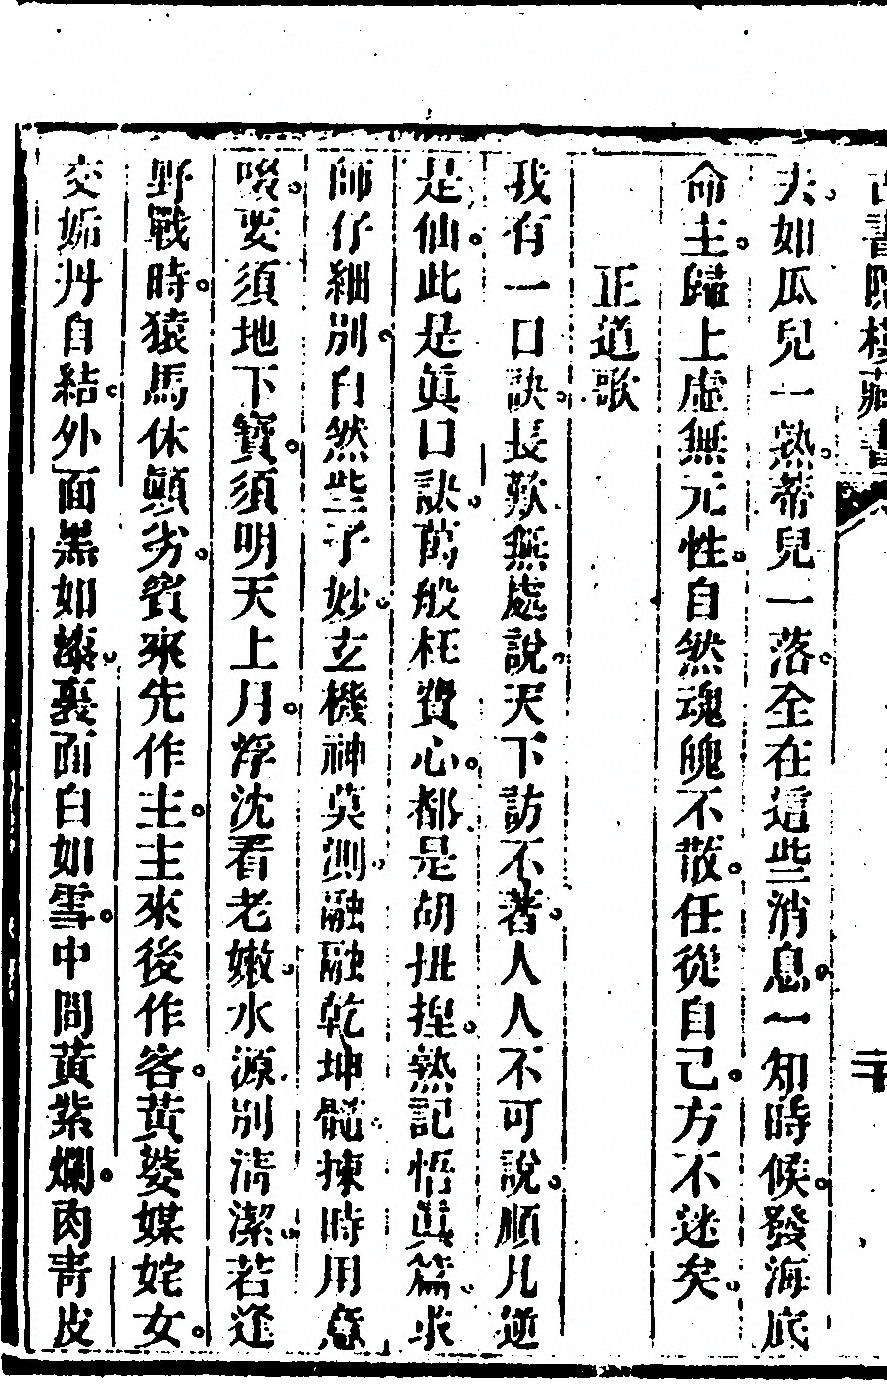 古書隱樓藏書
二十
去如瓜兒一熟蒂兒一落全在這些消息一知時候發海底
命主歸上虛無元性自然魂魄不散任從自己方不迷矣
正道歌
我有一口訣長歎無處說天下訪不著人人不可說順凡逆
是仙此是眞口訣萬般枉費心都是胡扭捏熟記悟眞篇求
師仔細別自然些子妙玄機神莫測融融乾坤髓揀時用意
啜要須地下寶須明天上月浮沈看老嫩水源別清潔若逢
野戰時猿馬休顛劣賓來先作主主來後作客黃婆媒姹女
交姤丹自結外面黑如漆裏面白如雪中間黃紫爛肉青皮